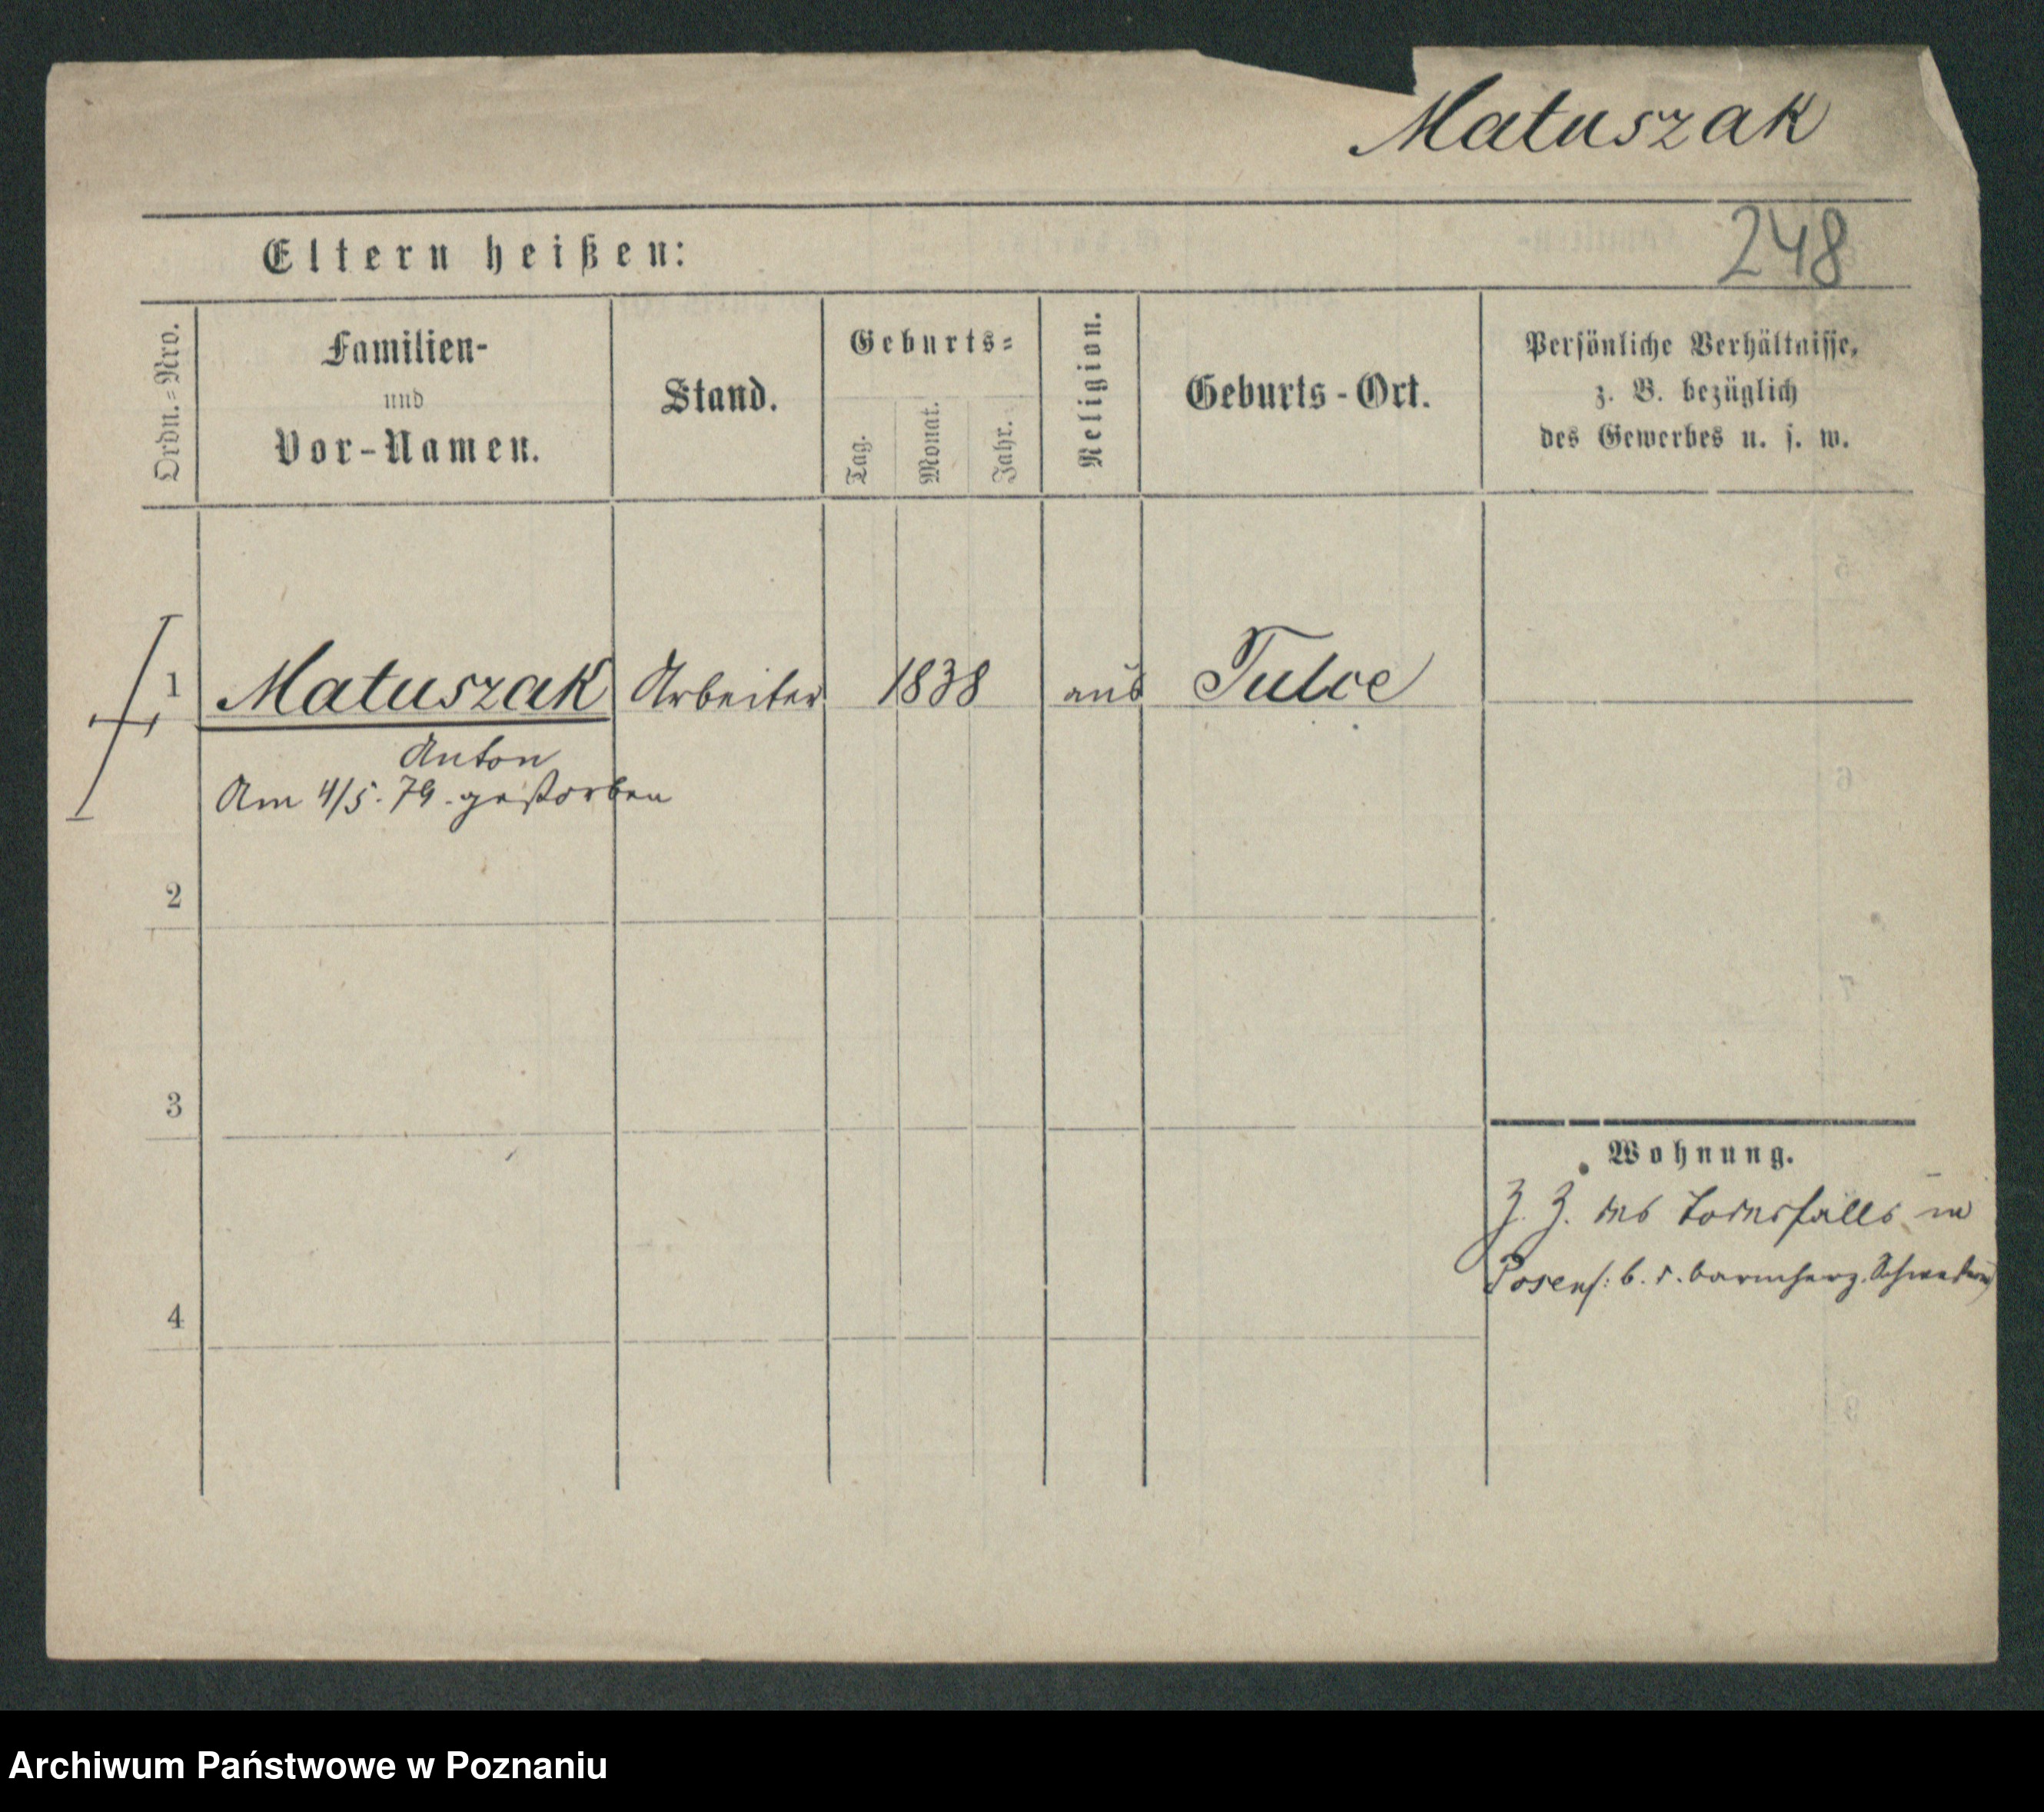 Matuszak
248
Eltern heißen:
Ordn.=Nro.
Familien-
und
Vor-Namen.
Stand.
Geburts=
Tag.
Monat.
Jahr.
Religion.
Geburts-Ort.
Persönliche Verhältnisse,
z. B. bezüglich
des Gewerbes u. s. w.
1 Matuszak Arbeiter 1838 aus Tulce
Anton
Am 4/5. 79. gestorben
2
3
4
Wohnung.
Z. Z. des Todesfalls in
Posen /: b. d. barmherz. Schwestern
Archiwum Państwowe w Poznaniu